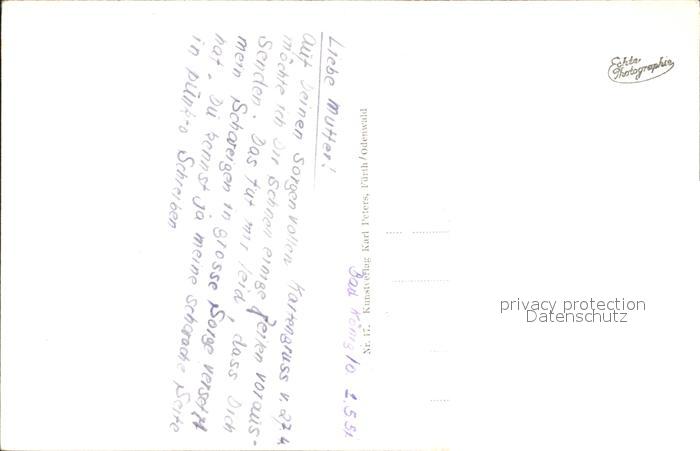 Bad König 1.5.51
Liebe Mutter!
Auf Deinen sorgenvollen Kartengruss v. 27.4
möchte ich Dir schnell einige Zeilen voraus-
senden. Das tut mir leid, dass Dich
mein Schweigen in grosse Sorge versetzt
hat. Du kennst ja meine schwache Seite
in punkto Schreiben
Nr. 17. Kunstverlag Karl Peters, Fürth/Odenwald
Echte
Photographie
privacy protection
Datenschutz